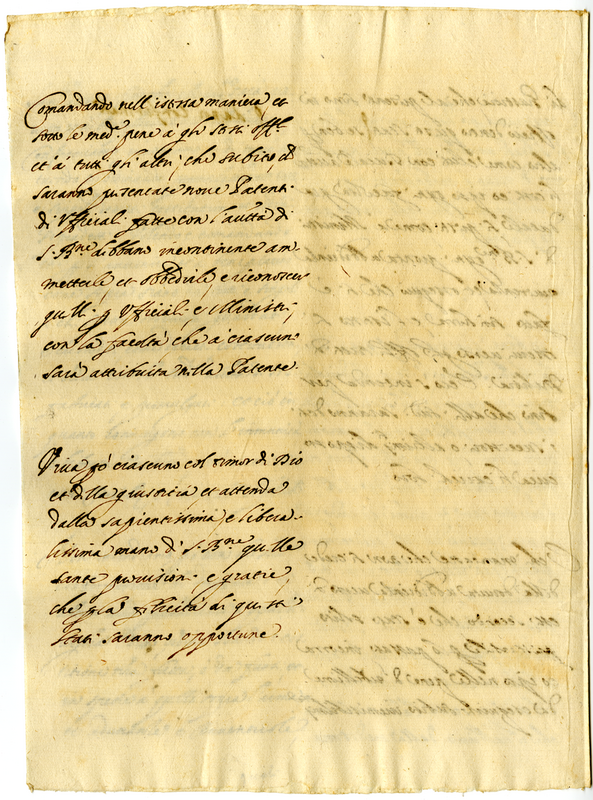 Comandando nell'istessa maniera, et
sotto le med.e pene à gli stessi off.li
et à tutti gli altri, che subito, ch
saranno presentate nove Patenti
di Vfficiali fatte con l'autta di
S. B.ne debbano incontinente am
mettere, et obbedire, e riconoscer
quelli p Vfficiali, e Ministri,
con la facoltà che à ciascuno
sarà attribuita nella Patente.
Viva però ciascuno col timor di Dio
et della giustitia et attenda
dalla sapientissima, e libera-
lissima mano di S. B.ne quelle
sante provisioni e gratie,
che p la felicità di questi
stati saranno opportune.